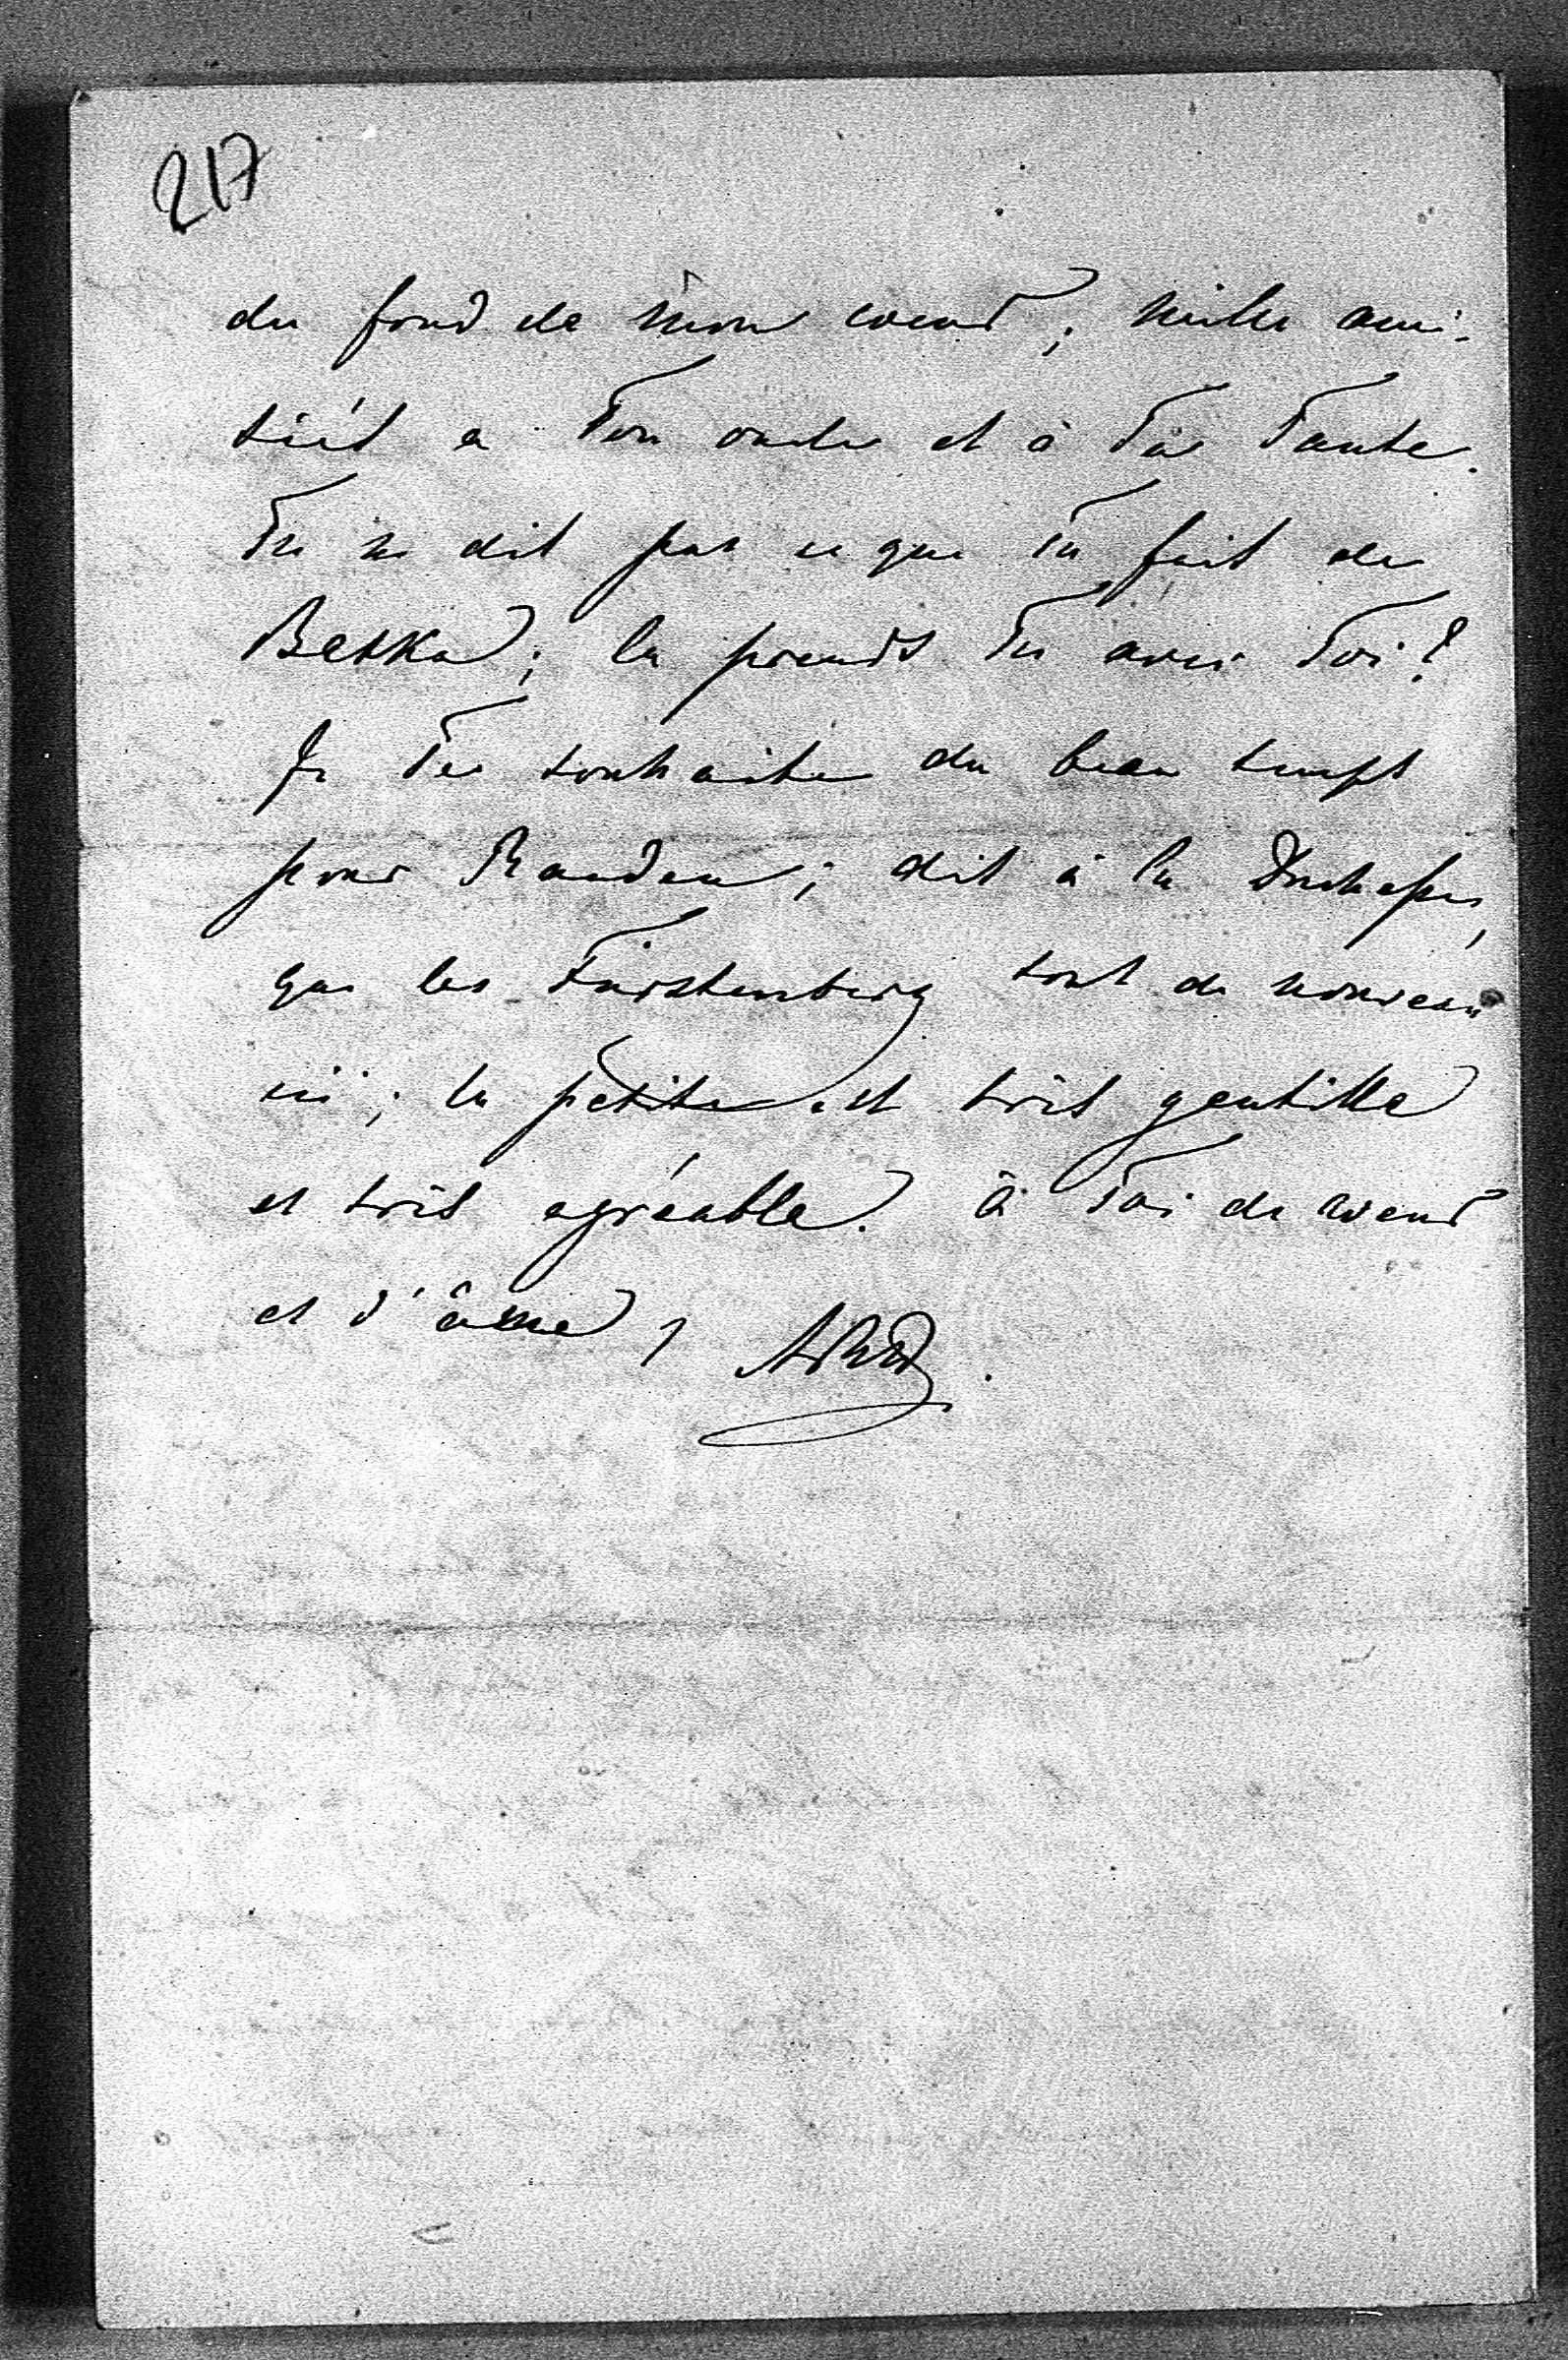 217
du fond de mon coeur; mille ami-
tiés a Ton oncle et à Ta Tante.
Tu ne dis pas ce que Tu fais de
Bekka; la prends Tu avec Toi?
Je Te souhaite du beau temps
pour Randen; dis à la Duchesse,
que les Fürstenberg sont de nouveau
ici; la petite est très gentille
et très agréable. à Toi de coeur
et d'âme,